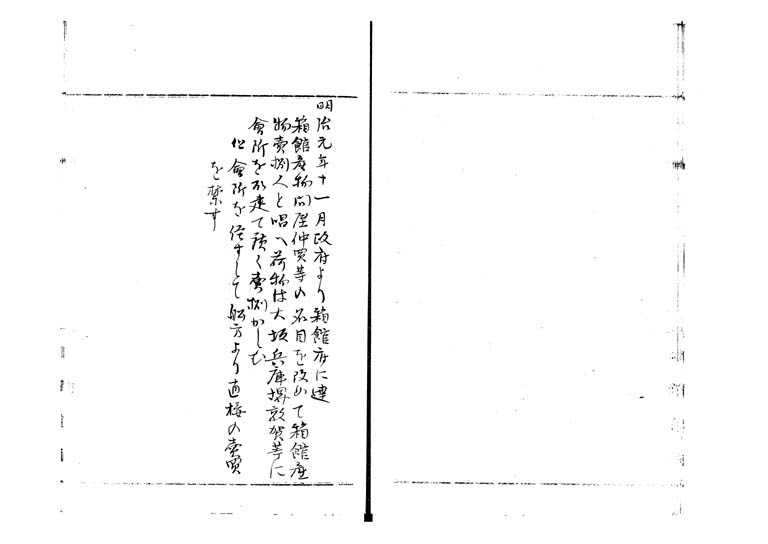 明治元年十一月政府より箱館府に達
箱館産物問屋仲買等の名目を改めて箱館産
物売捌人と唱へ荷物は大坂兵庫堺敦賀等に
會所を取建て該く売捌かしむ
但會所を経すして船方より直接の売買
を禁す